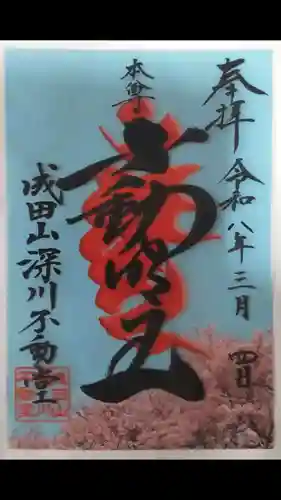 奉拝
令和八年三月
四日
本尊
不動明王
成田山深川不動堂